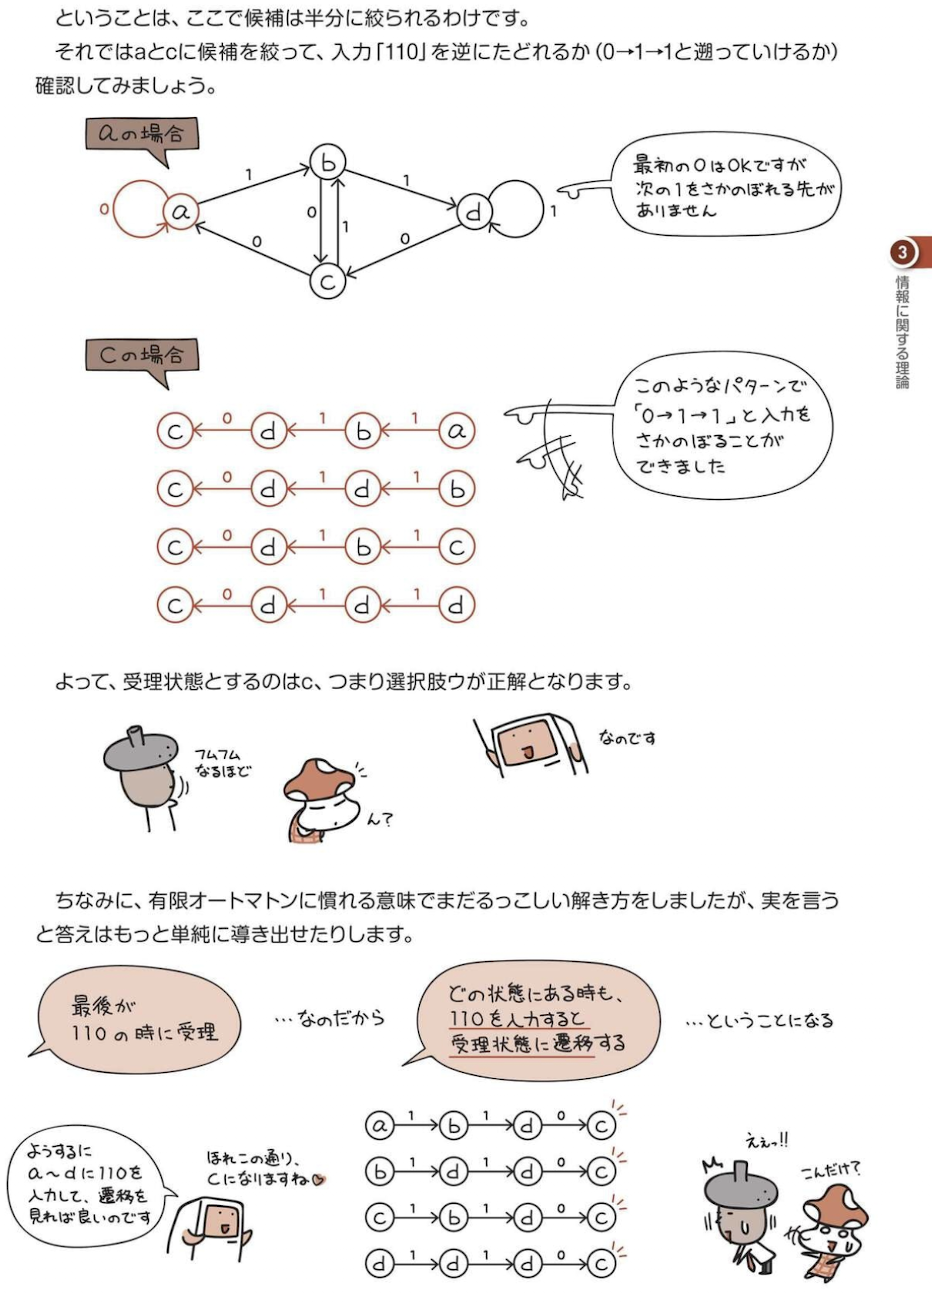 ということは、ここで候補は半分に絞られるわけです。
それではaとcに候補を絞って、入力「110」を逆にたどれるか（0→1→1と遡っていけるか）
確認してみましょう。
aの場合
0
a
1
b
0
1
1
d
1
0
0
c
最初の0はOKですが
次の1をさかのぼれる先が
ありません
3
情報に関する理論
cの場合
c 0 d 1 b 1 a
c 0 d 1 d 1 b
c 0 d 1 b 1 c
c 0 d 1 d 1 d
このようなパターンで
「0→1→1」と入力を
さかのぼることが
できました
よって、受理状態とするのはc、つまり選択肢ウが正解となります。
フムフム
なるほど
ん？
なのです
ちなみに、有限オートマトンに慣れる意味でまだるっこしい解き方をしましたが、実を言う
と答えはもっと単純に導き出せたりします。
最後が
110の時に受理
…なのだから
どの状態にある時も、
110を入力すると
受理状態に遷移する
…ということになる
ようするに
a〜dに110を
入力して、遷移を
見れば良いのです
ほれこの通り、
cになりますね
a 1 b 1 d 0 c
b 1 d 1 d 0 c
c 1 b 1 d 0 c
d 1 d 1 d 0 c
えぇっ!!
こんだけ？